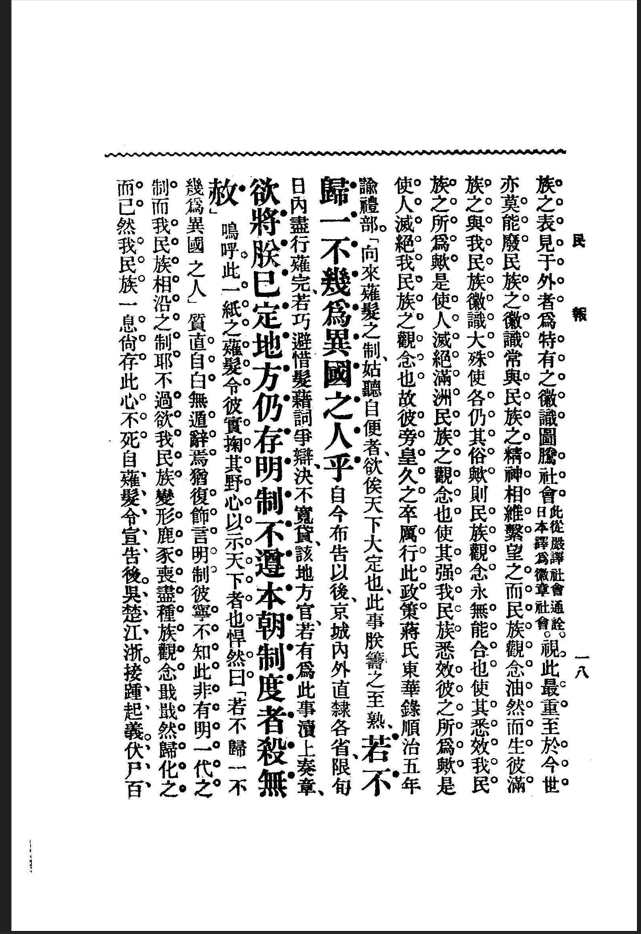 民報
一八
族之表見于外者爲特有之徽識圖騰社會此從嚴譯社會通詮日本譯爲徽章社會。視此最重至於今世
亦莫能廢民族之徽識常與民族之精神相維繫望之而民族觀念油然而生彼滿
族之與我民族徽識大殊使各仍其俗歟則民族觀念永無能合也使其悉效我民
族之所爲歟是使人滅絕滿洲民族之觀念也使其强我民族悉效彼之所爲歟是
使人滅絕我民族之觀念也故彼旁皇久之卒厲行此政策蔣氏東華錄順治五年
諭禮部。「向來薙髮之制、姑聽自便者、欲俟天下大定也、此事朕籌之至熟、若不
歸一不幾爲異國之人乎自今布告以後、京城內外直隸各省、限旬
日內盡行薙完、若巧避惜髮、藉詞爭辯、決不寬貸、該地方官、若有爲此事瀆上奏章、
欲將朕已定地方仍存明制不遵本朝制度者殺無
赦」嗚呼此一紙之薙髮令彼實掬其野心以示天下者也悍然曰「若不歸一不
幾爲異國之人」質直自白無遁辭焉猶復飾言明制彼寧不知此非有明一代之
制而我民族相沿之制耶不過欲我民族變形鹿豕喪盡種族觀念戢戢然歸化之
而已然我民族一息尙存此心不死自薙髮令宣告後、吳楚江浙、接踵起義、伏尸百